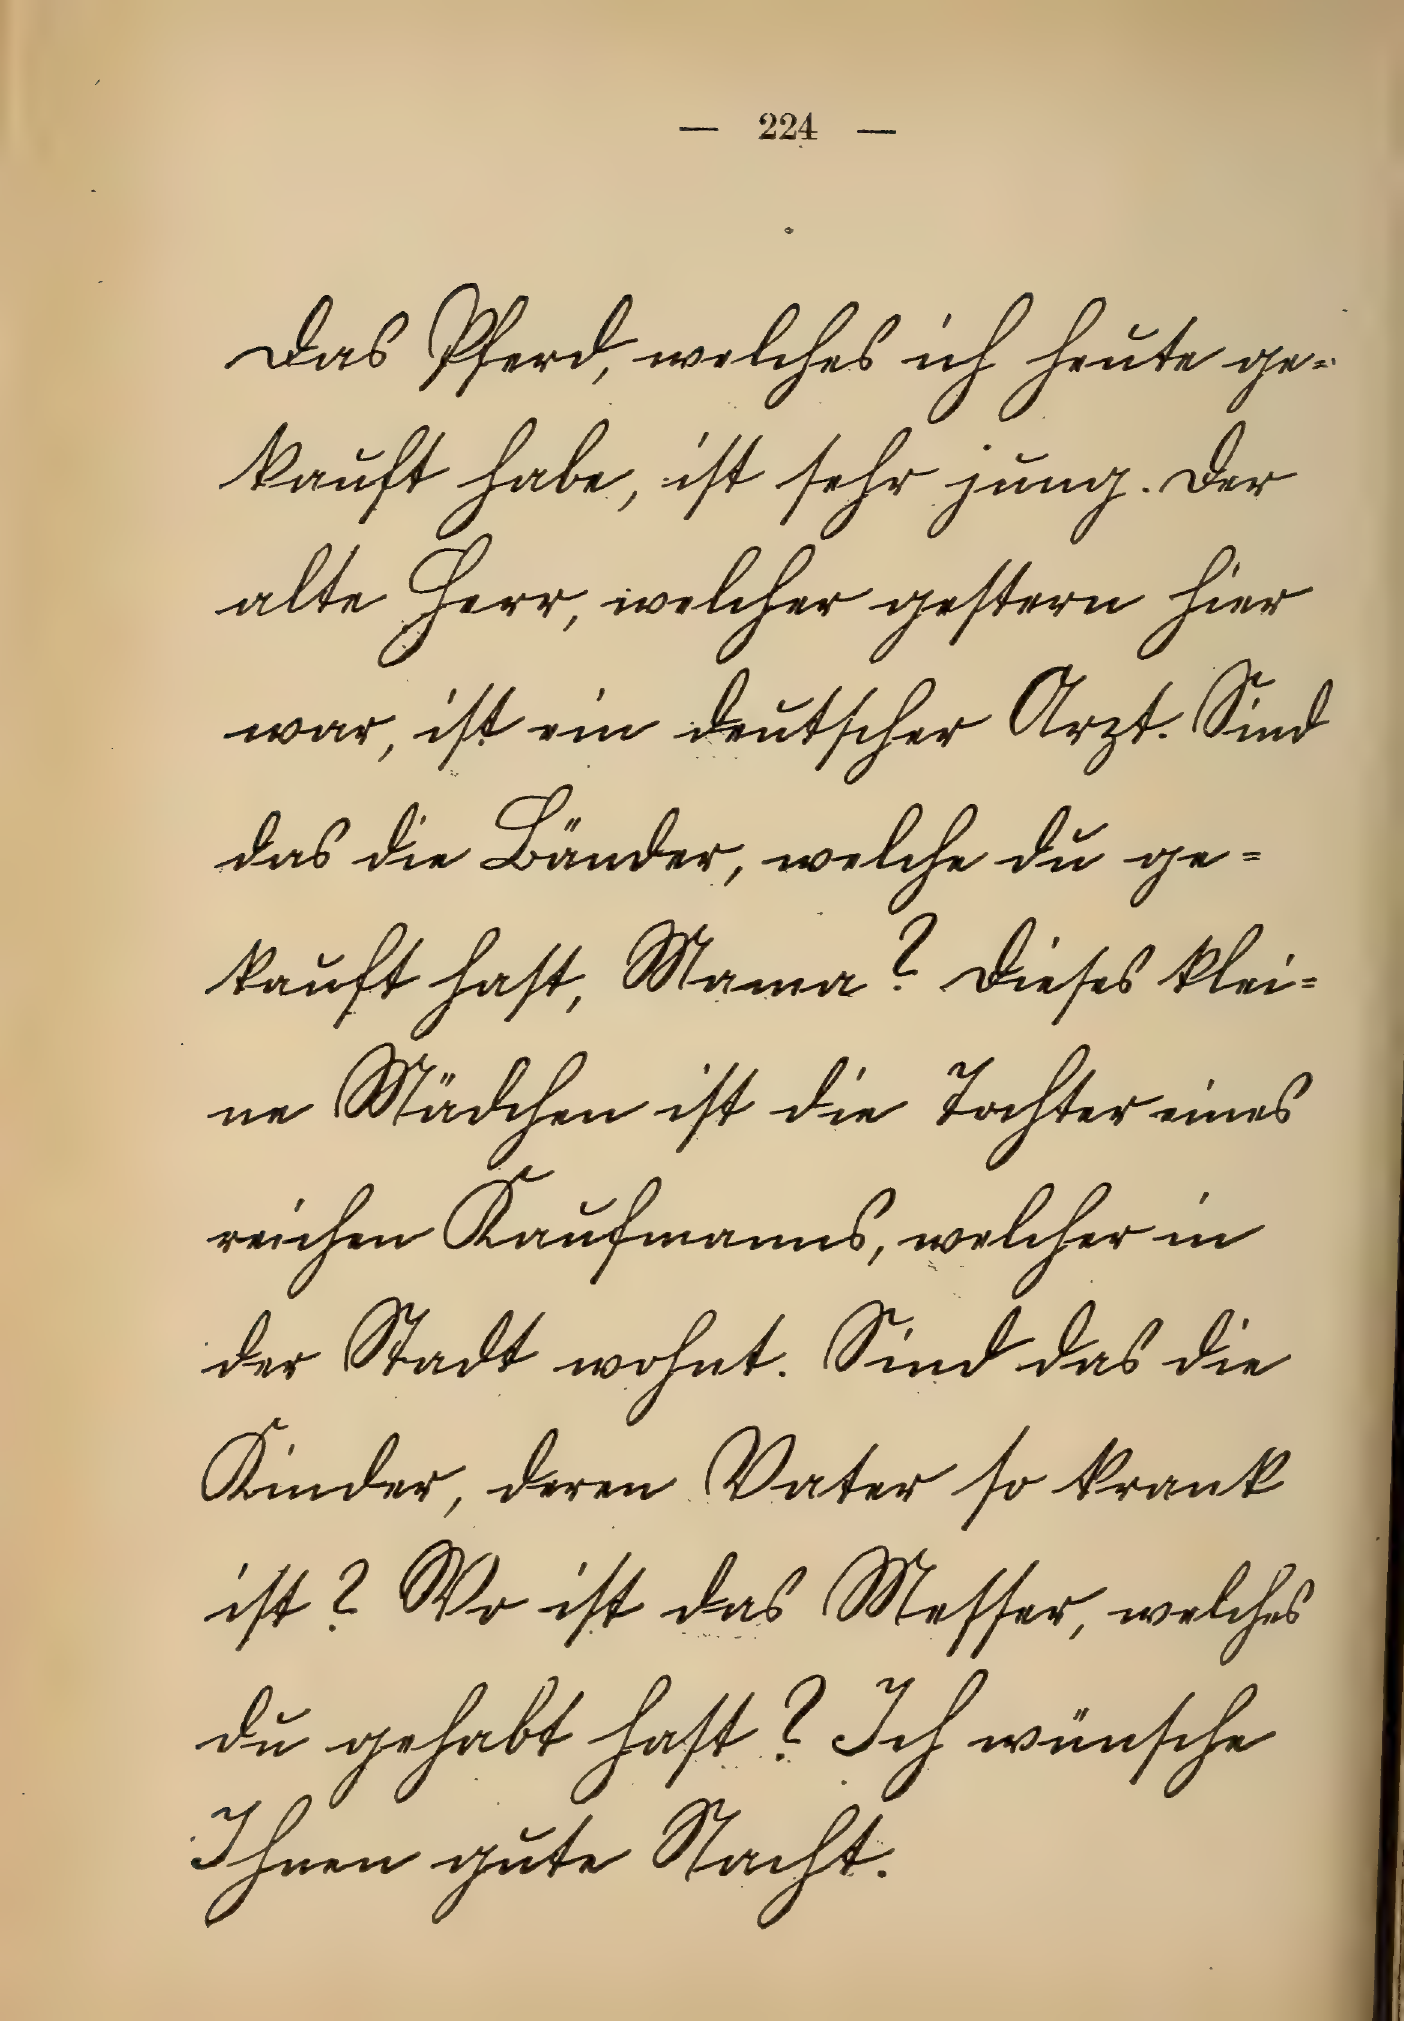 — 224 —
Das Pferd, welches ich heute ge=
kauft habe, ist sehr jung. Der
alte Herr, welcher gestern hier
war, ist ein deutscher Arzt. Sind
das die Bänder, welche du ge=
kauft hast, Mama? Dieses klei=
ne Mädchen ist die Tochter eines
reichen Kaufmanns, welcher in
der Stadt wohnt. Sind das die
Kinder, deren Vater so krank
ist? Wo ist das Messer, welches
du gehabt hast? Ich wünsche
Ihnen gute Nacht.